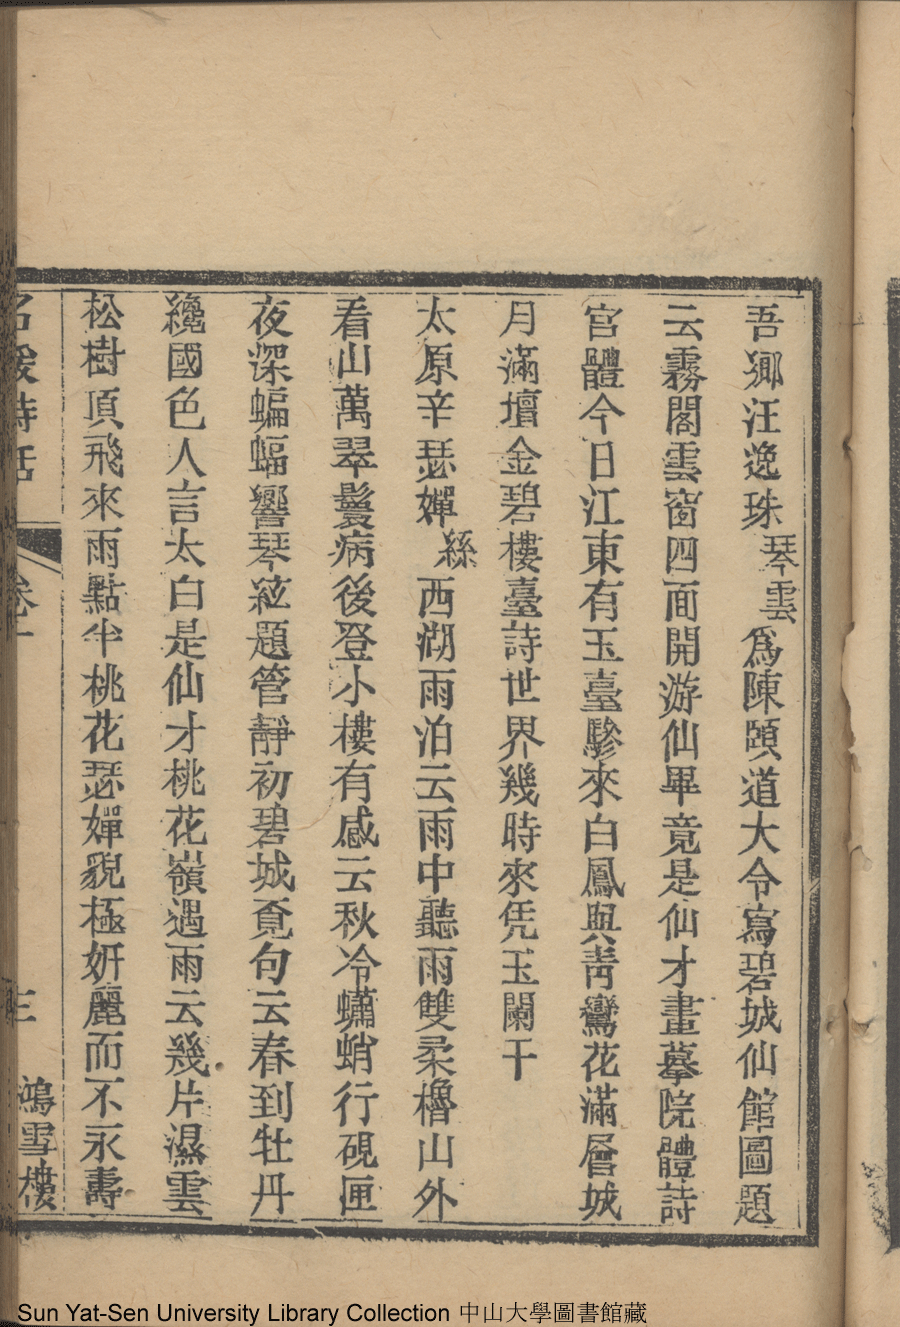 吾鄉汪逸珠琴雲爲陳頤道大令寫碧城仙館圖題
云霧閣雲窗四面開游仙畢竟是仙才畫摹院體詩
宮體今日江東有玉臺驂來白鳳與青鸞花滿層城
月滿壇金碧樓臺詩世界幾時來凭玉闌干
太原辛瑟嬋絲西湖雨泊云雨中聽雨雙柔櫓山外
看山萬翠鬟病後登小樓有感云秋冷蠨蛸行硯匣
夜深蝙蝠響琴絃題管靜初碧城覔句云春到牡丹
纔國色人言太白是仙才桃花嶺遇雨云幾片濕雲
松樹頂飛來雨點半桃花瑟嬋貌極妍麗而不永壽
名媛詩話 卷十 三 鴻雪樓
Sun Yat-Sen University Library Collection 中山大學圖書館藏